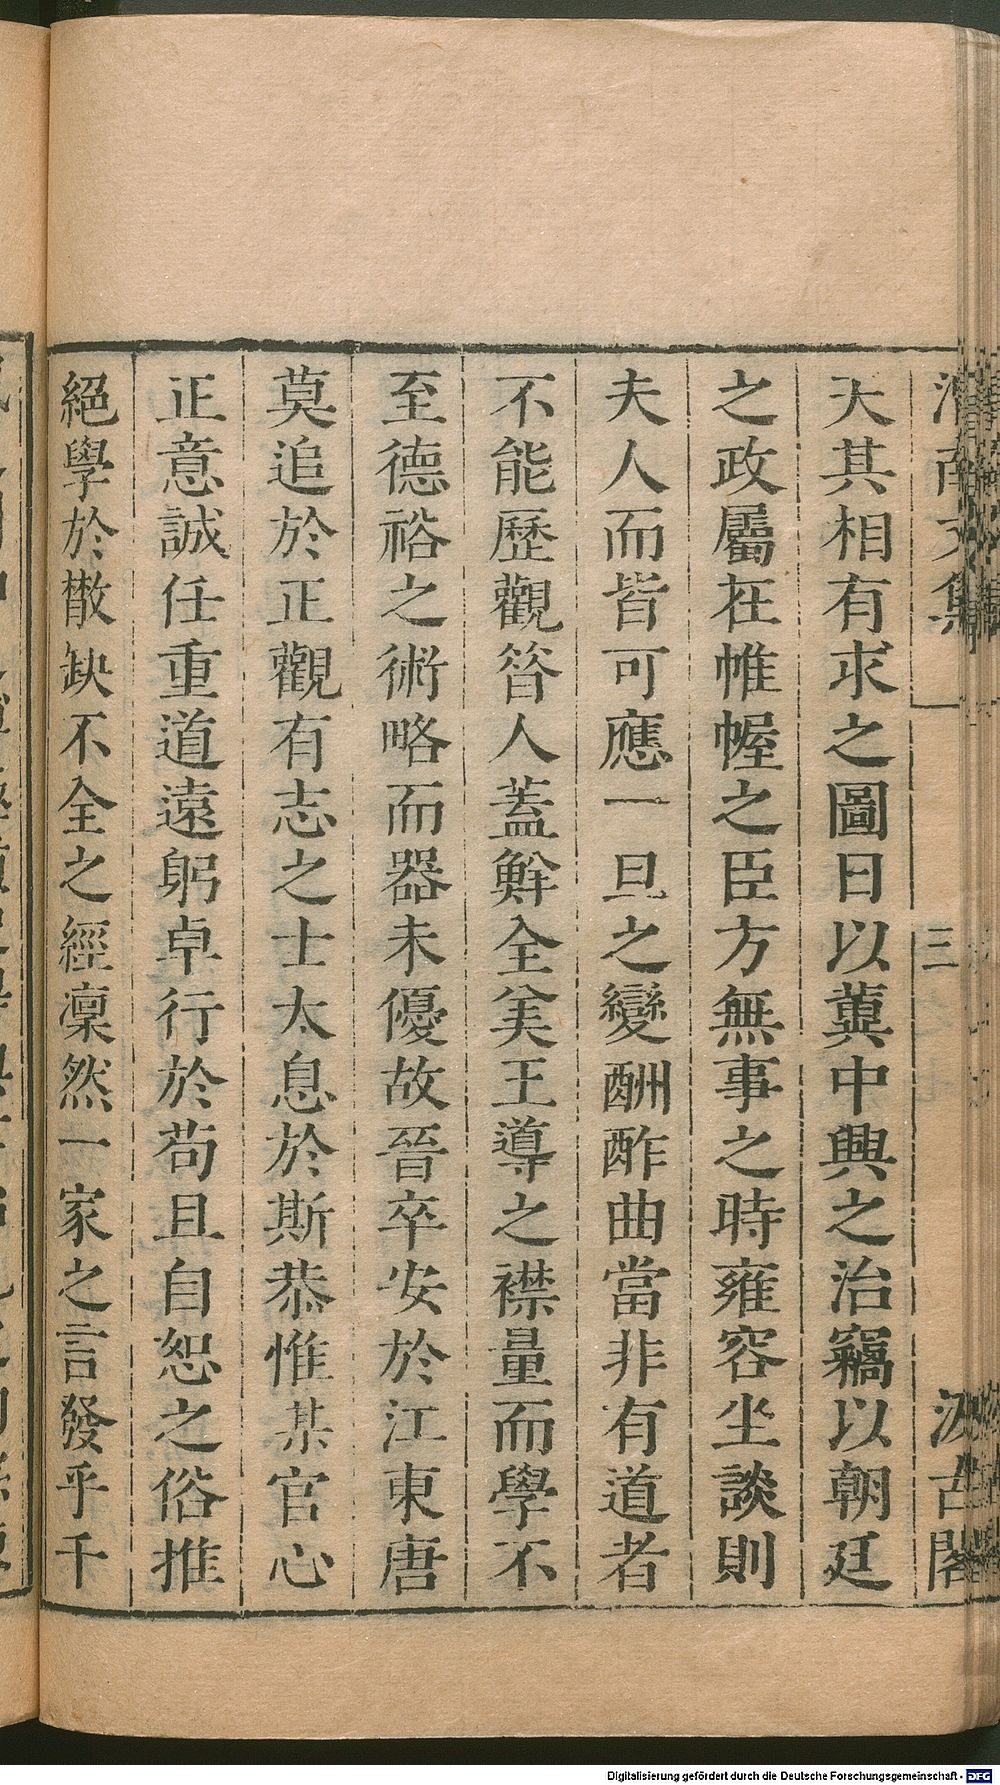 渭南文集 三 汲古閣
天其相有求之圖日以冀中興之治竊以朝廷
之政屬在帷幄之臣方無事之時雍容坐談則
夫人而皆可應一旦之變酬酢曲當非有道者
不能歷觀昔人蓋鮮全美王導之襟量而學不
至德裕之術略而器未優故晉卒安於江東唐
莫追於正觀有志之士太息於斯恭惟某官心
正意誠任重道遠躬卓行於苟且自恕之俗推
絕學於散缺不全之經凜然一家之言發乎千
Digitalisierung gefördert durch die Deutsche Forschungsgemeinschaft - DFG